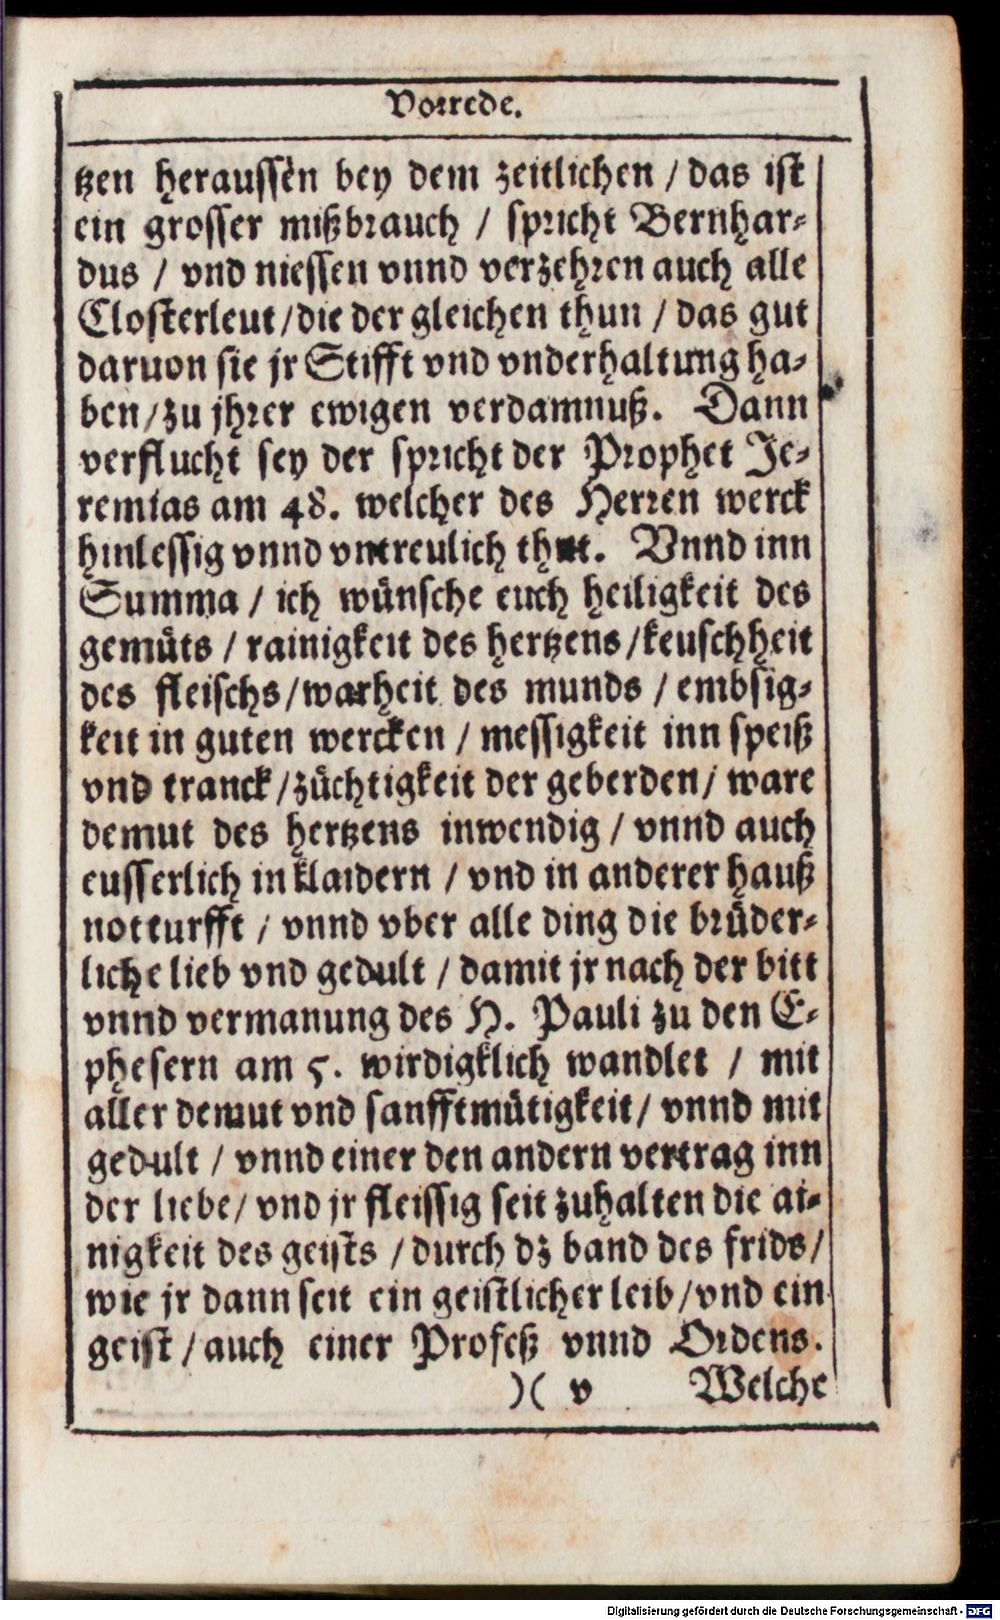 Vorrede.
tzen heraussen bey dem zeitlichen / das ist
ein grosser mißbrauch / spricht Bernhar-
dus / vnd niessen vnnd verzehren auch alle
Closterleut / die der gleichen thun / das gut
daruon sie jr Stifft vnd vnderhaltung ha-
ben / zu jhrer ewigen verdamnuß. Dann
verflucht sey der spricht der Prophet Je-
remias am 48. welcher des Herren werck
hinlessig vnnd vntreulich thut. Vnnd inn
Summa / ich wünsche euch heiligkeit des
gemüts / rainigkeit des hertzens / keuschheit
des fleischs / warheit des munds / embsig-
keit in guten wercken / messigkeit inn speiß
vnd tranck / züchtigkeit der geberden / ware
demut des hertzens inwendig / vnnd auch
eusserlich in klaidern / vnd in anderer hauß
notturfft / vnnd vber alle ding die brüder-
liche lieb vnd gedult / damit jr nach der bitt
vnnd vermanung des H. Pauli zu den E-
phesern am 5. wirdigklich wandlet / mit
aller demut vnd sanfftmütigkeit / vnnd mit
gedult / vnnd einer den andern vertrag inn
der liebe / vnd jr fleissig seit zuhalten die ai-
nigkeit des geists / durch dz band des frids /
wie jr dann seit ein geistlicher leib / vnd ein
geist / auch einer Profeß vnnd Ordens.
)( v Welche
Digitalisierung gefördert durch die Deutsche Forschungsgemeinschaft - DFG